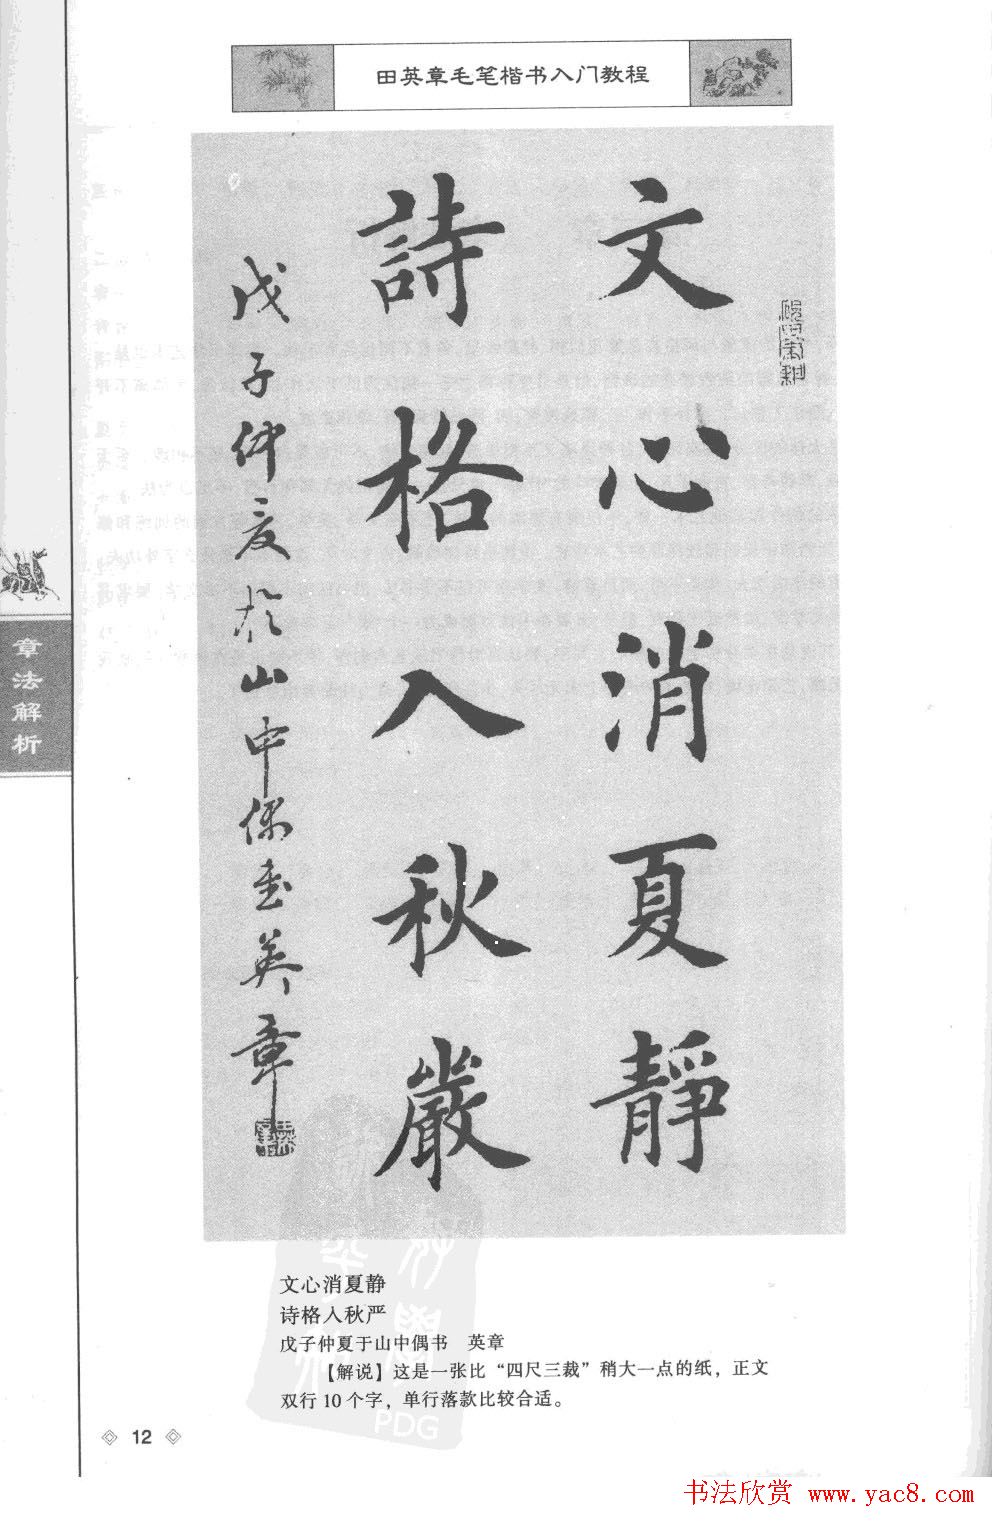 田英章毛笔楷书入门教程
文心消夏靜
詩格入秋嚴
戊子仲夏於山中偶书英章
章法解析
文心消夏静
诗格入秋严
戊子仲夏于山中偶书 英章
【解说】这是一张比“四尺三裁”稍大一点的纸，正文
双行10个字，单行落款比较合适。
12
PDG
书法欣赏 www.yac8.com